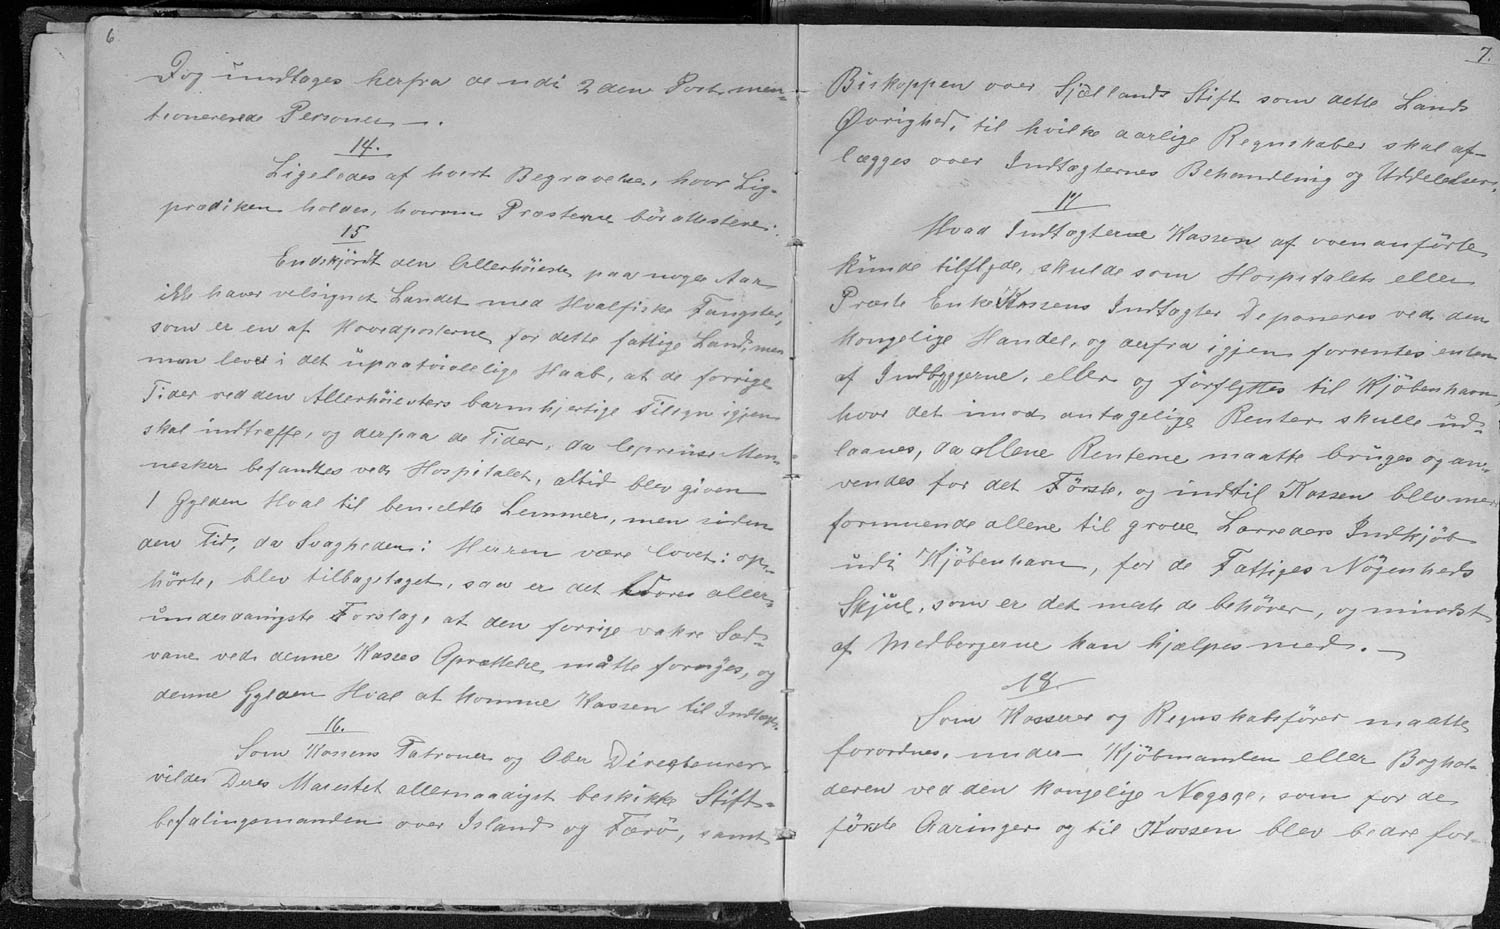 6
Dog undtages herfra de udi 2den Post men-
tionererede Personer —.
14.
Ligeledes af hvert Begravelse, hvor Lig-
prædiken holdes, hvorom Præsterne bør attestere.
15
Endskjöndt den Allerhöieste paa nogle Aar
ikke haver velsignet Landet med Hvalfiske Fangster,
som er en af Hovedposterne for dette fattige Land, men
man lever i det upaatvivlelige Haab, at de forrige
Tider ved den Allerhöiesters barmhjertige Tilsyn igjen
skal indtræffe, og derpaa de Tider, da lepreuse Men-
nesker befandtes ved Hospitalet, altid blev given
1 Gylden Hval til bemeldte Lemmer, men siden
den Tid, da Svagheden: Herren være lovet: op-
hörte, blev tilbagetaget, saa er det vores aller-
underdanigste Forslag, at den forrige vakre Sæd-
vane ved denne Kasses Oprættelse måtte fornyes, og
denne Gylden Hval at komme Kassen til Indtægt.
16.
Som Kassens Patroner og Ober Directeurer
vilde Deres Maiestet allernaadigst beskikke Stift-
befalingsmanden over Island og Færö, samt
7.
Biskoppen over Sjællands Stift som dette Lands
Øvrighed, til hvilke aarlige Regnskaber skal af-
lægges over Indtægternes Behandling og Uddelelser.
17
Hvad Indtægterne Kassen af ovenanförte
kunde tilflyde, skulde som Hospitalets eller
Præste Enke Kassens Indtægter Deponeres ved den
Kongelige Handel, og derfra igjen forrentes enten
af Indbyggerne, eller og forflyttes til Kjöbenhavn,
hvor det imod antagelige Renter skulle ud-
laanes, da allene Renterne maatte bruges og an-
vendes for det Förste, og indtil Kassen blev mere
formuende allene til grove Larreders Indkjöb
udi Kjöbenhavn, for de Fattiges Nögenheds
Skjul, som er det meste de behöver, og mindst
af Medborgerne kan hjælpes med. —
18
Som Kasserer og Regnskabsförer maatte
forordnes, under Kjöbmanden eller Boghol-
deren ved den kongelige Negoce, som for de
förste Aaringer og til Kassen blev bedre for-